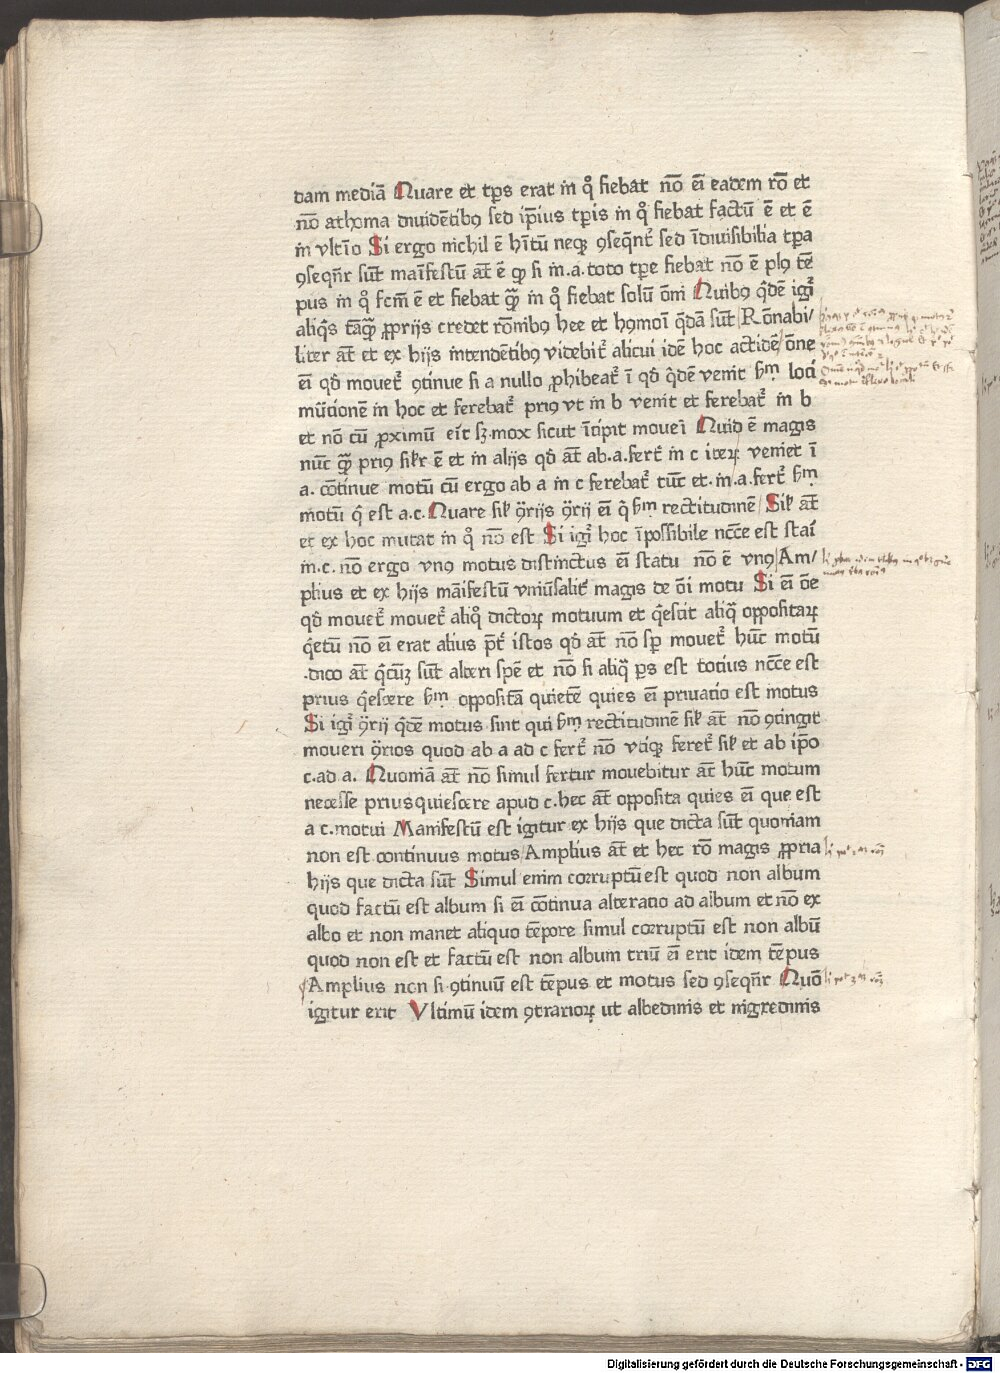 dam mediā Quare et tꝑs erat in qͦ fiebat nō eī eadem rō et
nō athoma diuidētibꝯ sed ip̄ius tꝑis in qͦ fiebat factū ē et ē
in vltīo Si ergo nichil ē hītū neqꝫ ꝯseqn̄t sed īdiuisibilia tꝑa
ꝯseqn̄r sūt maīfestū āt ē ꝙ si in .a. toto tꝑe fiebat nō ē plꝯ tē
pus in qͦ fcm̄ ē et fiebat ꝙ̄ in qͦ fiebat solū om̄i Quibꝯ qͥdē igi͛
aliqͥs tāꝙ̄ ꝓprijs credet rōnibꝯ hee et hꝯmoī qͥdā sūt/ Rōnabi/
liter āt et ex hijs intendētibꝯ videbit͛ alicui idē hoc actidē/ ōne
eī qd̄ mouet͛ ꝯtinue si a nullo ꝓhibeat͛ ī qd̄ qͥdē venit hͫ loci
mūtionē in hoc et ferebat͛ priꝯ vt in b venit et ferebat͛ in b
et nō cū ꝓximū eīt sꝫ mox sicut īcipit moueri Quid ē magis
nūc ꝙ̄ priꝯ sikr ē et in alijs qd̄ āt ab .a. fert͛ in c iterꝝ veniet ī
a. cōtinue motū cū ergo ab a in c ferebat͛ tūc et .in .a. fert͛ hͫ
motū qͥ est a.c. Quare sik ꝯ̄rijs ꝯ̄rij eī qͥ hͫ rectitudinē/ Sik āt
et ex hoc mutat in qͦ nō est Si igi͛ hoc īpossibile nc̄ce est staī
in .c. nō ergo vnꝯ motus distinctus eī statu nō ē vnꝯ/ Am/
plius et ex hijs māifestū vniūsalit͛ magis de ōi motu Si eī ōe
qd̄ mouet͛ mouet͛ aliqͦ dictorꝝ motuum et qͥescit aliqͣ oppositarꝝ
qͥetū nō eī erat alius p̄t istos qd̄ āt nō sꝑ mouet͛ hūc motū
.dico āt qͥcūꝫ sūt alteri spē et nō si aliqͣ ꝑs est totius nc̄ce est
prius qͥescere hͫ oppositā quietē quies eī priuatio est motus
Si igi͛ ꝯ̄rij qͥdē motus sint qui hͫ rectitudinē sik āt nō ꝯtingit
moueri ꝯ̄rios quod ab a ad c fert͛ nō vtiqꝫ feret͛ sik et ab ip̄o
c.ad a. Quoniā āt nō simul fertur mouebitur āt hūc motum
necesse prius quiescere apud c.hec āt opposita quies eī que est
a c.motui Manifestū est igitur ex hijs que dicta sūt quoniam
non est continuus motus/ Amplius āt et hec rō magis ꝓpria
hijs que dicta sūt Simul enim corruptū est quod non album
quod factū est album si eī cōtinua alteratio ad album et nō ex
albo et non manet aliquo tēpore simul corruptū est non albū
quod non est et factū est non album triū eī erit idem tēpus
Amplius non si ꝯtinuū est tēpus et motus sed ꝯseqn̄r Quō
igitur erit Vltimū idem ꝯtrariorꝝ ut albedinis et nigredinis
Digitalisierung gefördert durch die Deutsche Forschungsgemeinschaft - DFG